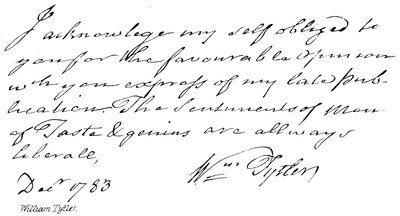 I acknowlege my self obliged to
you for the favourable opinion
wch you express of my late pub-
lication. The Sentiments of Men
of Taste & genius are allways
liberale,
Wm Tytler
Decr 1783
William Tytler.